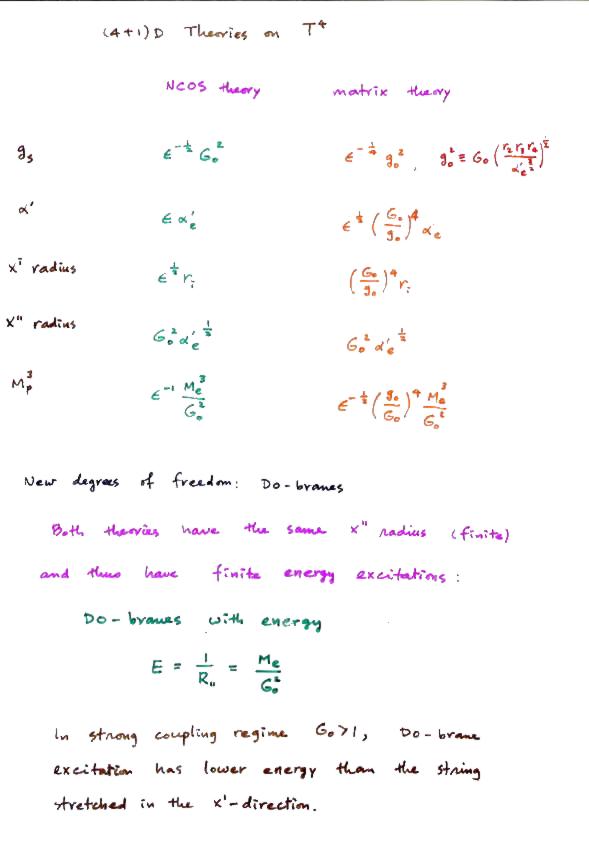 (4+1)D Theories on T⁴
NCOS theory matrix theory
g_s ε^{-1/2} G_o² ε^{-1/4} g_o², g_o² ≡ G_o (r₂r₃r₄ / α'_e^{3/2})^{1/2}
α' ε α'_e ε^{1/2} (G_o/g_o)⁴ α_e
xⁱ radius ε^{1/2} r_i (G_o/g_o)⁴ r_i
x" radius G_o² α'_e^{1/2} G_o² α'_e^{1/2}
M_p³ ε^{-1} M_e³/G_o² ε^{-1/2} (g_o/G_o)⁴ M_e³/G_o²
New degrees of freedom: Do-branes
Both theories have the same x" radius (finite)
and thus have finite energy excitations:
Do-branes with energy
E = 1/R_{11} = M_e/G_o²
In strong coupling regime G_o>1, Do-brane
excitation has lower energy than the string
stretched in the x'-direction.